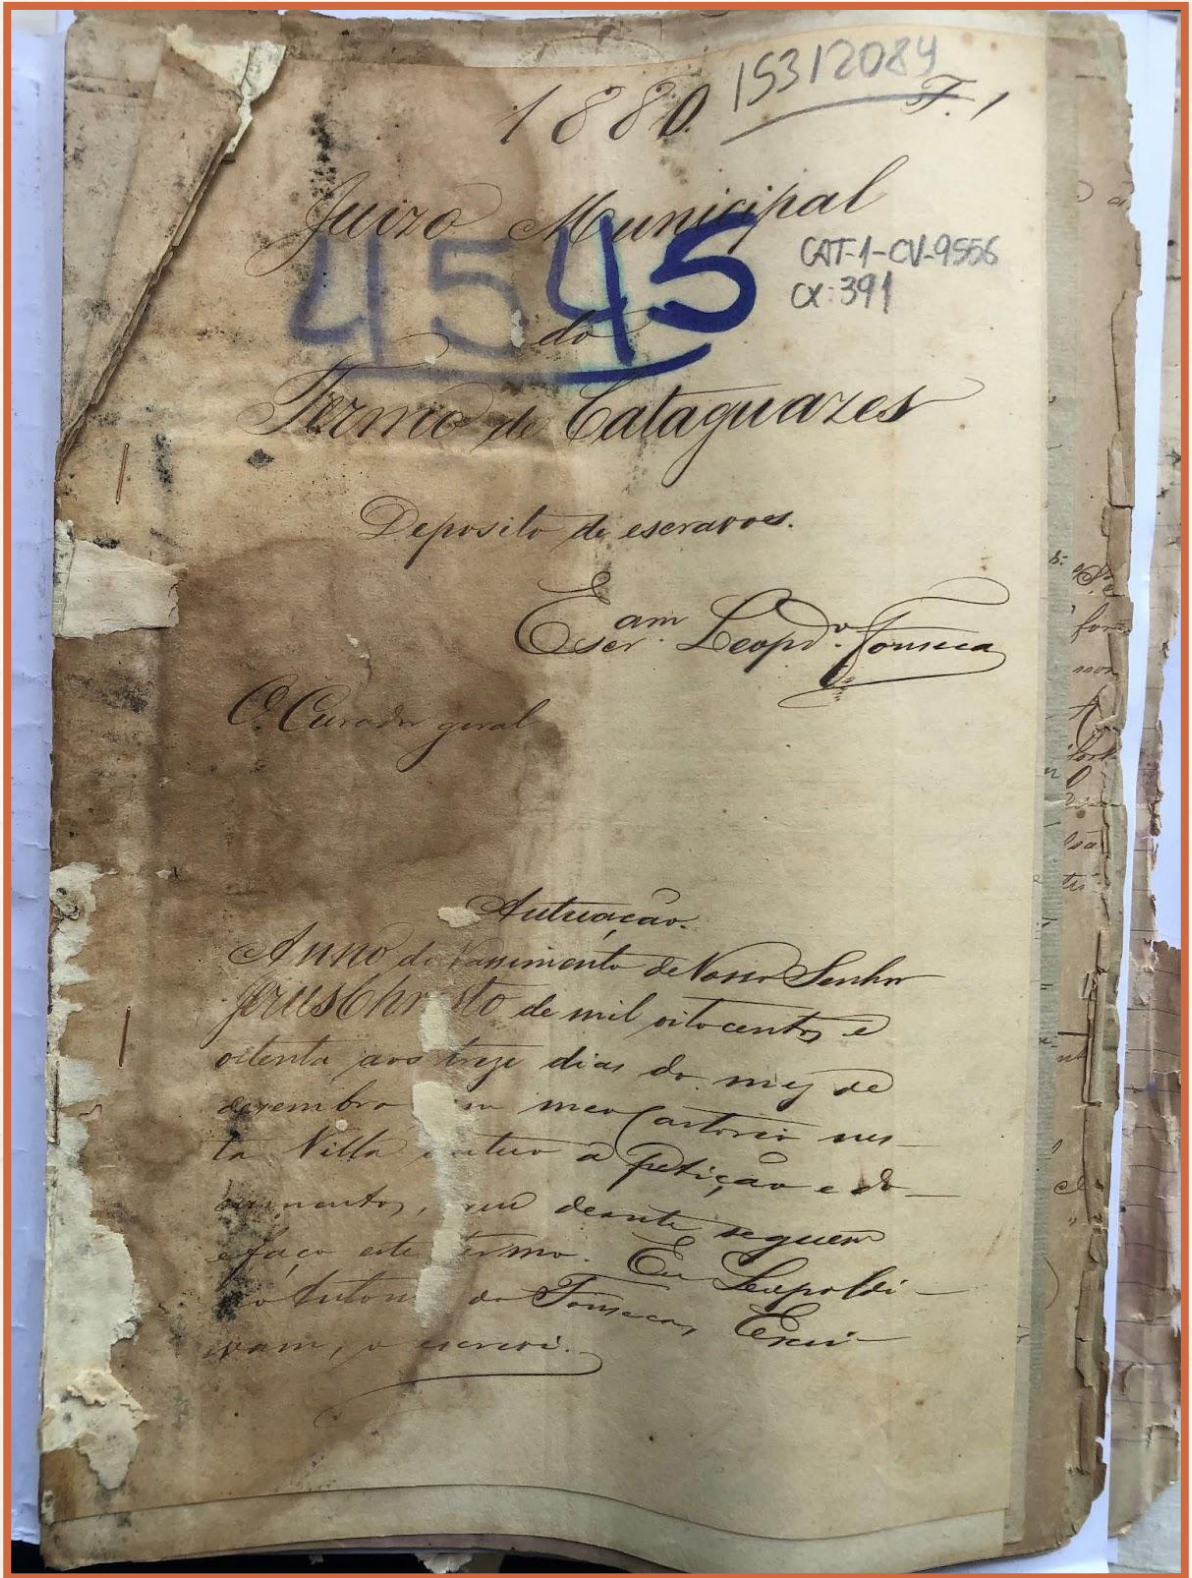 15312084
1880.
F. 1
Juizo Municipal
4545
CAT-1-CV-9556
CX: 391
do
Termo de Cataguazes
Deposito de escravos.
Escr.am Leopd.o Fonseca
O Curador geral
Autuação.
Anno do Nascimento de Nosso Senhor
Jesus Christo de mil oito centos e
oitenta aos treze dias do mez de
dezembro meu Cartorio nes-
ta Villa autuo a petição e do-
cumentos, que deante seguem
e faço este termo. Eu Leopoldi-
no Antonio da Fonseca, Escri-
vam, o escrevi.